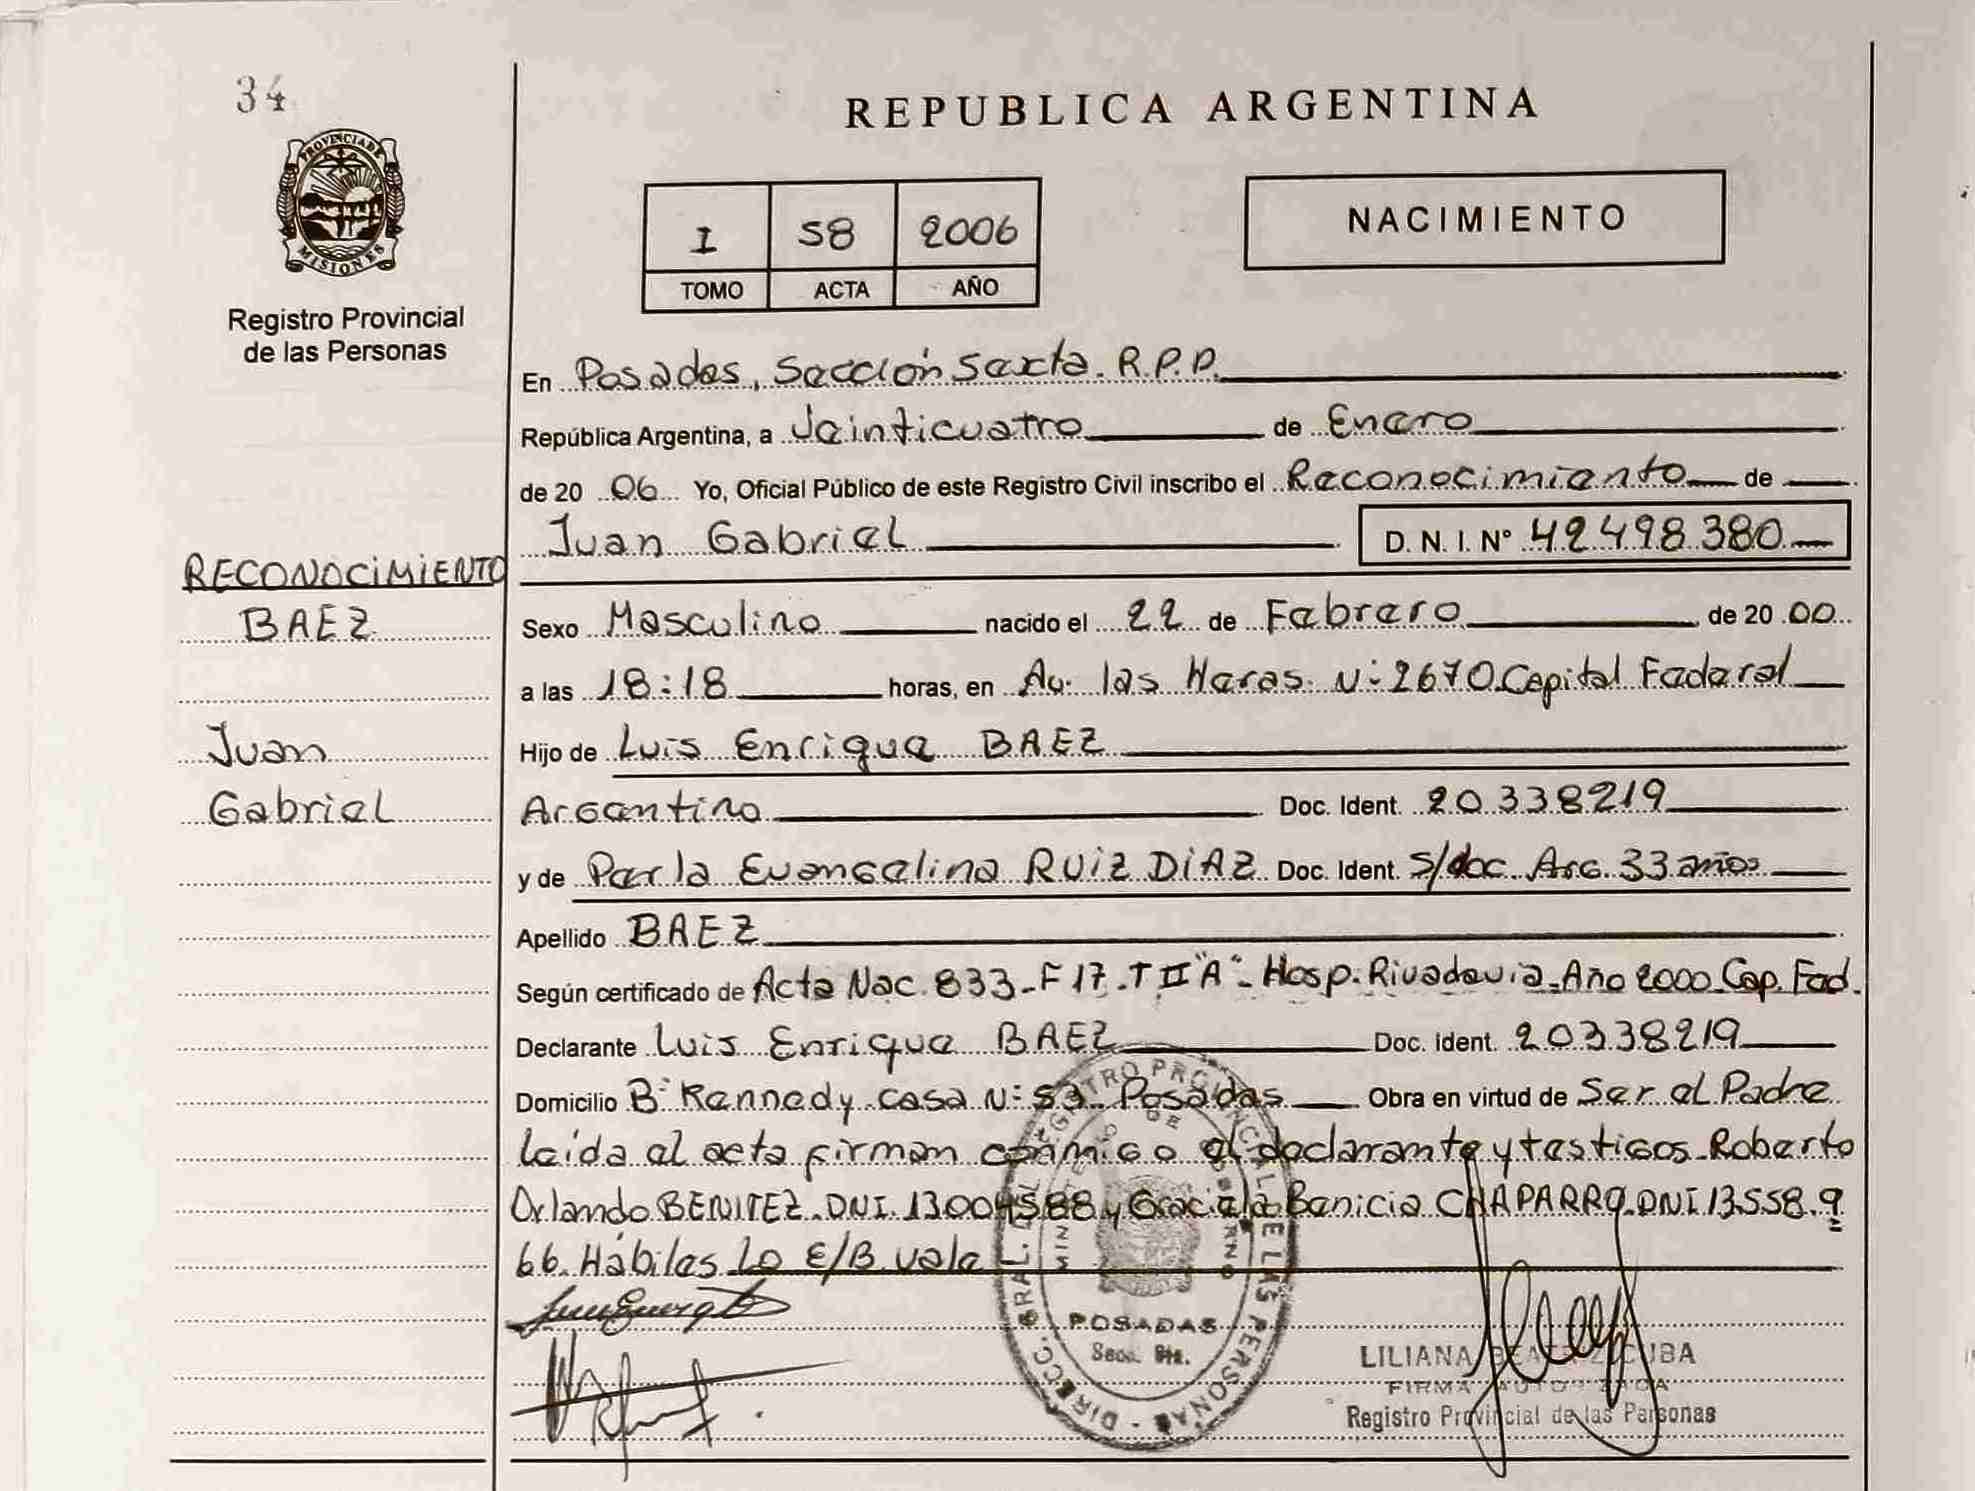 34
PROVINCIA DE
MISIONES
Registro Provincial
de las Personas
REPUBLICA ARGENTINA
I 58 2006
TOMO ACTA AÑO
NACIMIENTO
En Posadas, Sección Sexta. R.P.P.
República Argentina, a Veinticuatro de Enero
de 20 06 Yo, Oficial Público de este Registro Civil inscribo el Reconocimiento de
Juan Gabriel D. N. I. N° 42498380
RECONOCIMIENTO
BAEZ
Juan
Gabriel
Sexo Masculino nacido el 22 de Febrero de 20 00
a las 18:18 horas, en Av. las Heras N: 2670 Capital Federal
Hijo de Luis Enrique BAEZ
Argentino Doc. Ident. 20338219
y de Perla Evangelina RUIZ DIAZ Doc. Ident. S/doc. Arg. 33 años
Apellido BAEZ
Según certificado de Acta Nac. 833-F17-T II "A"- Hosp. Rivadavia-Año 2000 Cap. Fed.
Declarante Luis Enrique BAEZ Doc. Ident. 20338219
Domicilio B: Kennedy casa N: 53 Posadas Obra en virtud de Ser el Padre
leida el acta firman conmigo el declarante y testigos Roberto
Orlando BENITEZ DNI. 13004588 y Graciela Benicia CHAPARRO DNI 13.558.9
66. Hábiles Lo E/B vale
POSADAS
Secc. 6ta.
LILIANA BEATRIZ CUBA
FIRMA AUTORIZADA
Registro Provincial de las Personas